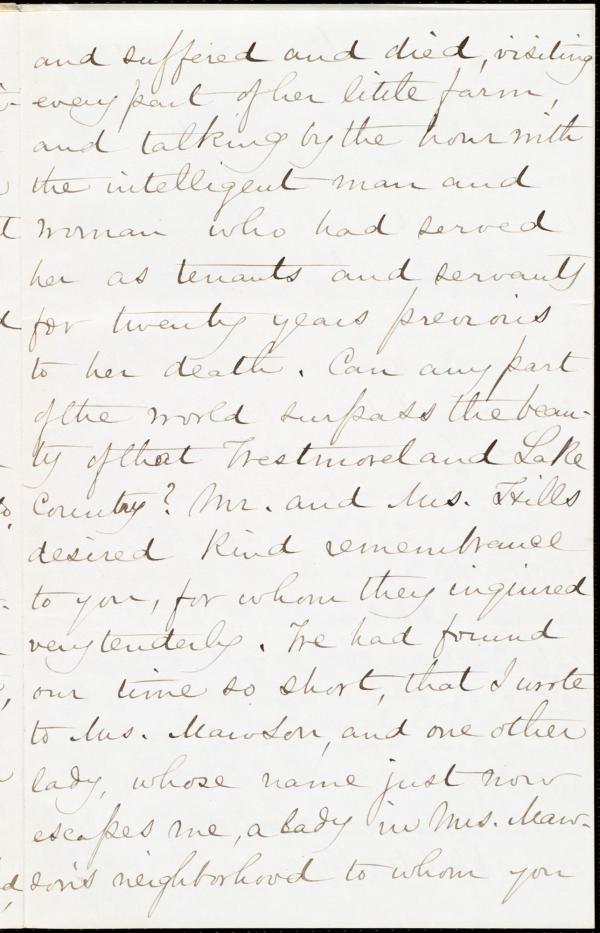 and suffered and died, visiting
every part of her little farm,
and talking by the hour with
the intelligent man and
woman who had served
her as tenants and servants
for twenty years previous
to her death. Can any part
of the world surpass the beau-
ty of that Westmoreland Lake
Country? Mr. and Mrs. Hills
desired kind remembrance
to you, for whom they inquired
very tenderly. We had found
our time so short, that I wrote
to Mrs. Mawson, and one other
lady, whose name just now
escapes me, a lady in Mrs. Maw-
son's neighborhood to whom you